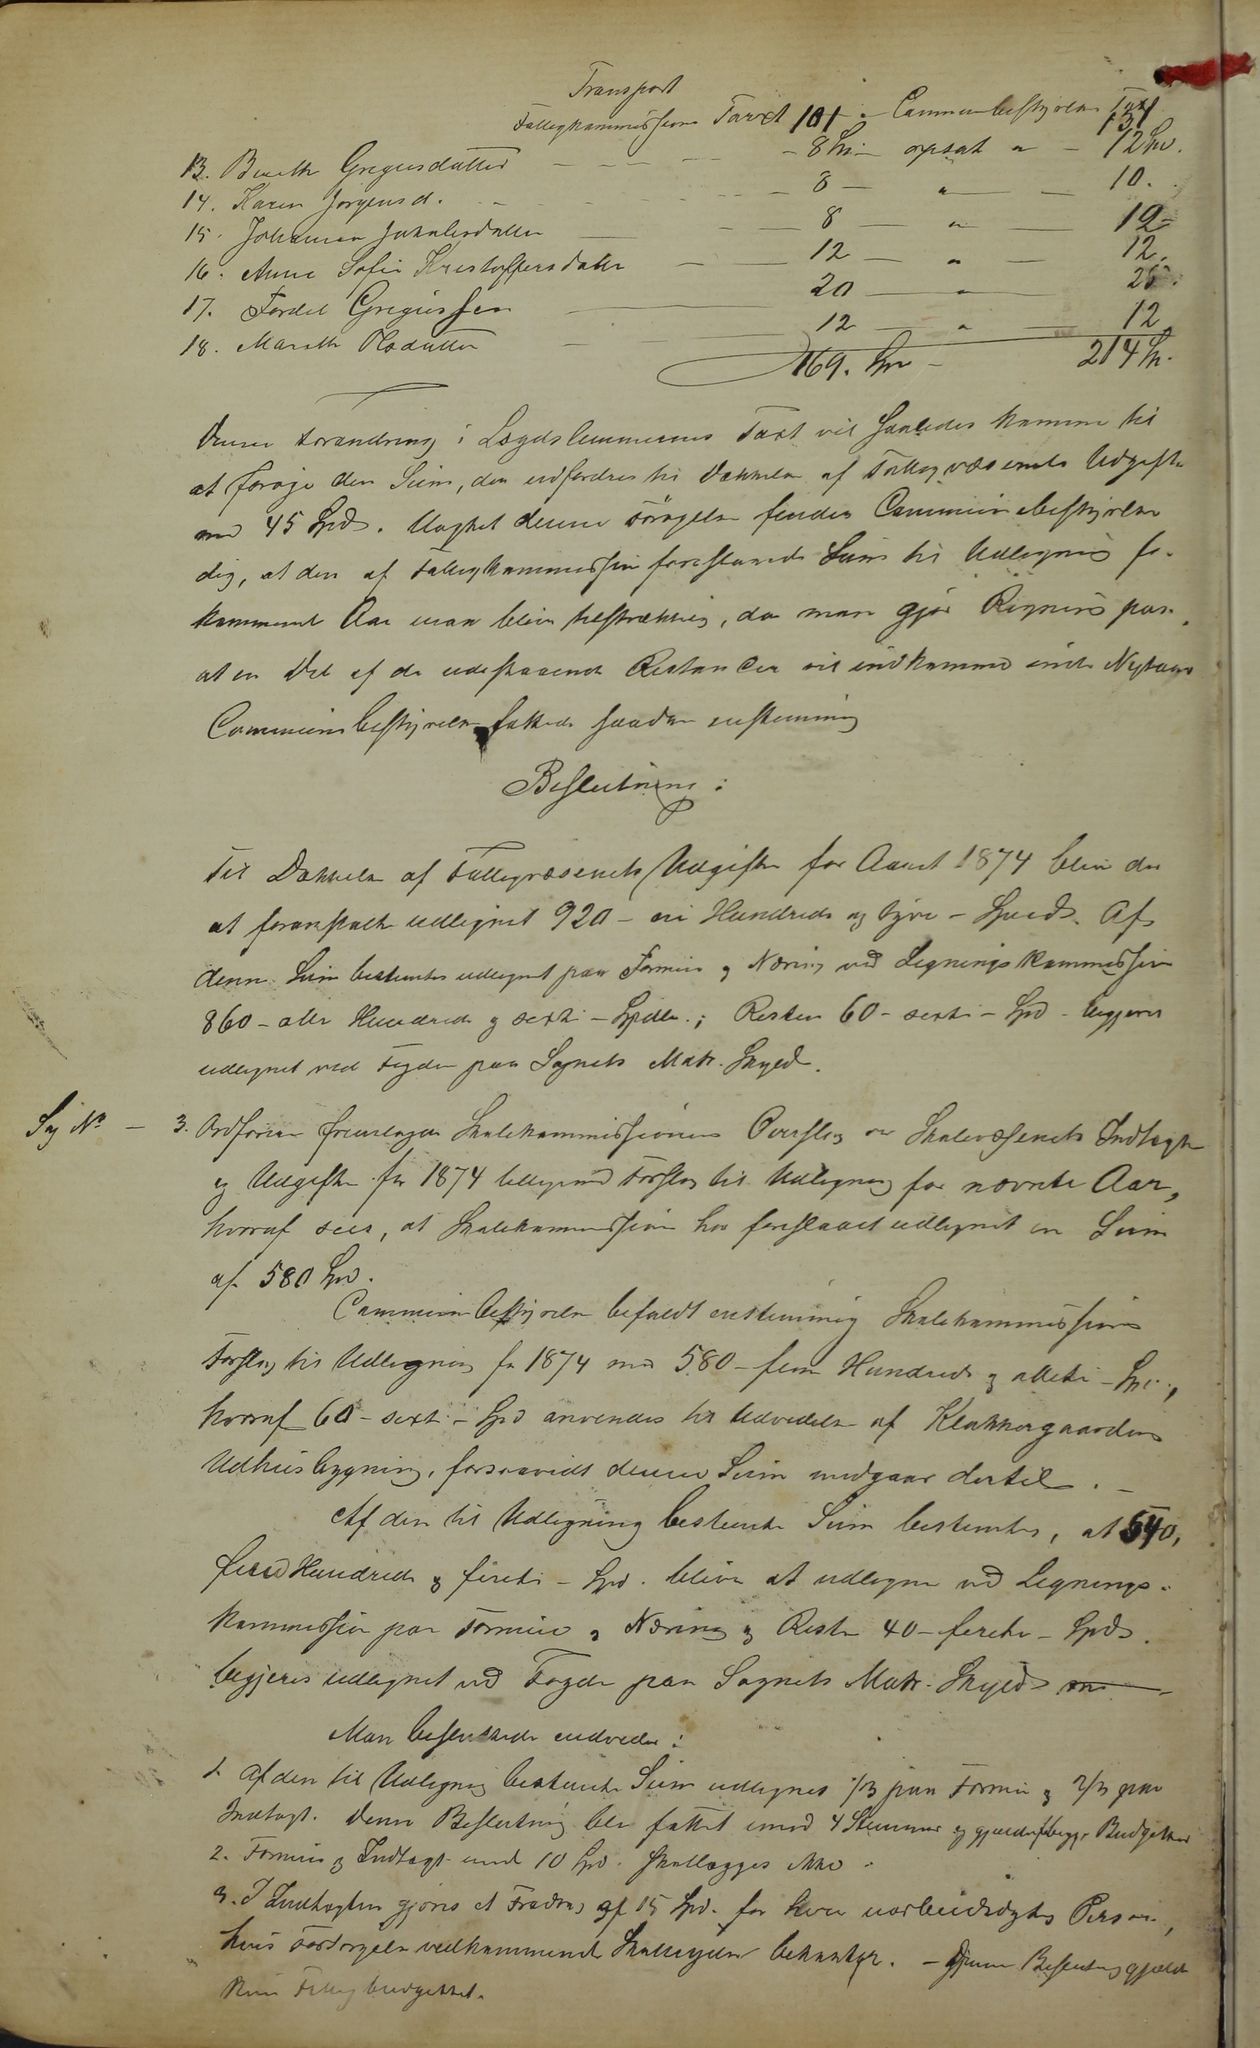 Transport
Fattigkommissions Taxt 101 - Communbestyrelse Taxt 131
13. Bereth Gregersdatter - 8 Spd - opsat " - 12 Spd.
14. Karen Jørgensd. - 8 - " - 10.
15. Johanna Jakobsdatter - 8 - " - 12
16. Anne Sofie Kristoffersdatter - 12 - " - 12.
17. Fordel Gregussen - 20 - " - 25.
18. Mareth Olsdatter - 12 - " - 12
169. Spd - 214 Sp.
Denne Forandring i Lægdslemmernes Taxt vil saaledes komme til
at forøge den Sum, der udfordres til Dækkelse af Fattigvæsenets Udgifter
med 45 Spd. Uagtet denne Forøgelse finder Communebestyrelsen
dog, at den af Fattigkommissionen foreslaaede Sum til Udligning fo-
kommende Aar maa blive tilstrækkelig, da man gjør Regning paa,
at en Del af de udestaaende Restancer vil indkomme inden Nytaar
Communebestyrelsen fattede saadan enstemmig
Beslutning:
Til Dækkelse af Fattigvæsenets Udgifter for Aaret 1874 bliver der
at foranstalte udlignet 920 - ni Hundrede og tyve - Specd. Af
denne Sum bestemtes udlignet paa Formue og Næring ved Ligningskommissionen
860 - otte Hundrede og sexti - Spdlr.; Resten 60 - sexti - Spd - begjæres
udlignet ved Fogden paa Sognets Matr. Skyld.
Sag No - 3. Ordføreren fremlagde Skolekommissionens Overslag over Skolevæsenets Indtægter
og Udgifter for 1874 tilligemed Forslag til Udligning for nævnte Aar,
hvoraf sees, at Skolekommissionen har foreslaaet udlignet en Sum
af 580 Spd.
Communebestyrelsen bifaldt enstemmig Skolekommissionens
Forslag til Udligning for 1874 med 580 - fem Hundrede og otteti - Spd.,
hvoraf 60 - sexti - Spd anvendes til Udvidelse af Klokkergaardens
Udhusbygning, forsaavidt denne Sum medgaar dertil. -
Af den til Udligning bestemte Sum bestemtes, at 540,
fem Hundrede og fireti - Spd. bliver at udligne ved Lignings-
kommissionen paa Formue og Næring og Resten 40 - fireti - Spd.
begjæres udlignet ved Fogden paa Sognets Matr. Skyld
Man besluttede endvidere:
1. Af den til Udligning bestemte Sum udlignes 1/3 paa Formue og 2/3 paa
Indtægt. Denne Beslutning blev fattet imod 4 Stemmer og gjælder begge Budgetter
2. Formue og Indtægt under 10 Spd. skatlægges ikke.
3. I Indtægten gjøres et Fradrag af 15 Spd. for hver uarbeidsdygtig Person,
hvis Forsørgelse vedkommende Skatteyder bekoster. - Denne Beslutning gjælder
kun Fattigbudgettet.